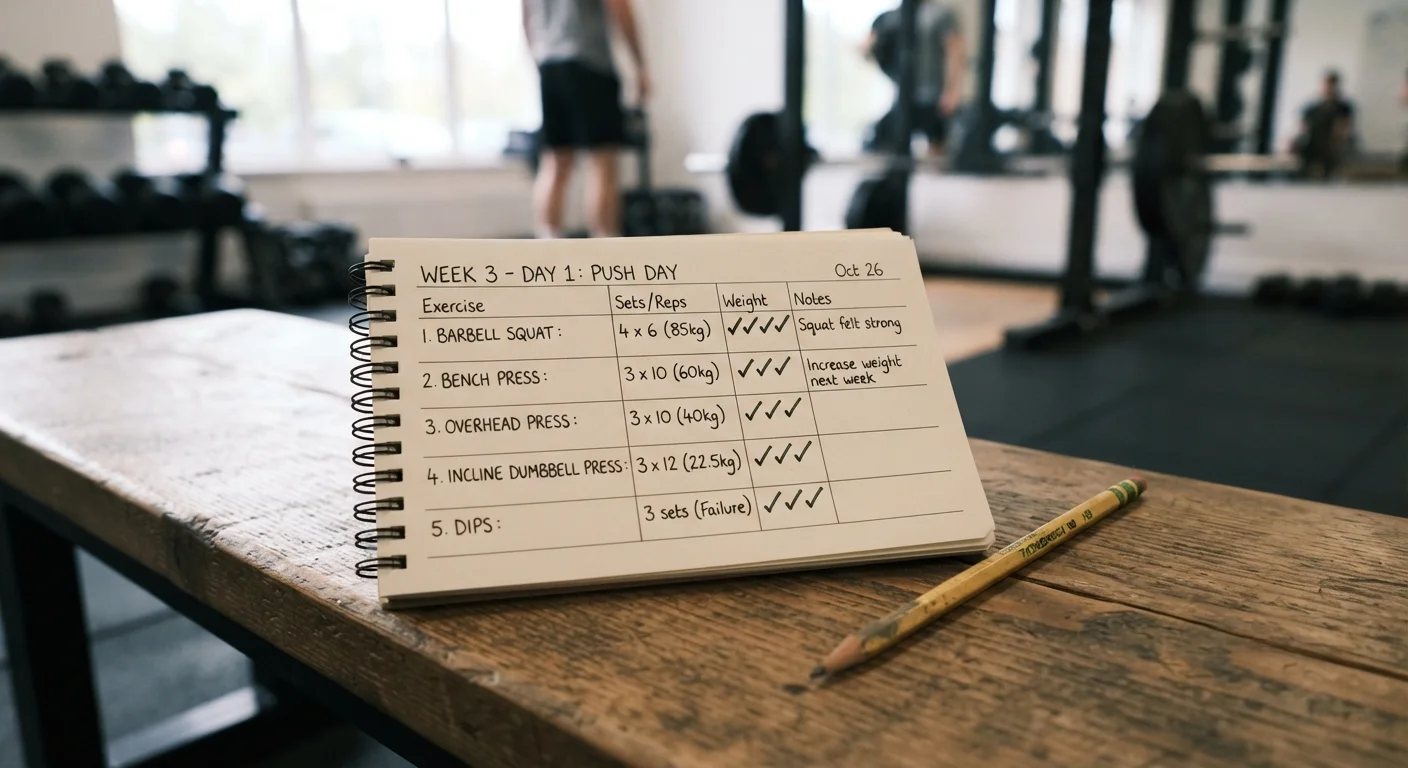 WEEK 3 - DAY 1: PUSH DAY Oct 26
Exercise Sets/Reps Weight Notes
1. BARBELL SQUAT: 4 x 6 (85kg) ✓✓✓✓ Squat felt strong
2. BENCH PRESS: 3 x 10 (60kg) ✓✓✓ Increase weight
next week
3. OVERHEAD PRESS: 3 x 10 (40kg) ✓✓✓
4. INCLINE DUMBBELL PRESS: 3 x 12 (22.5kg) ✓✓✓
5. DIPS: 3 sets (Failure) ✓✓✓